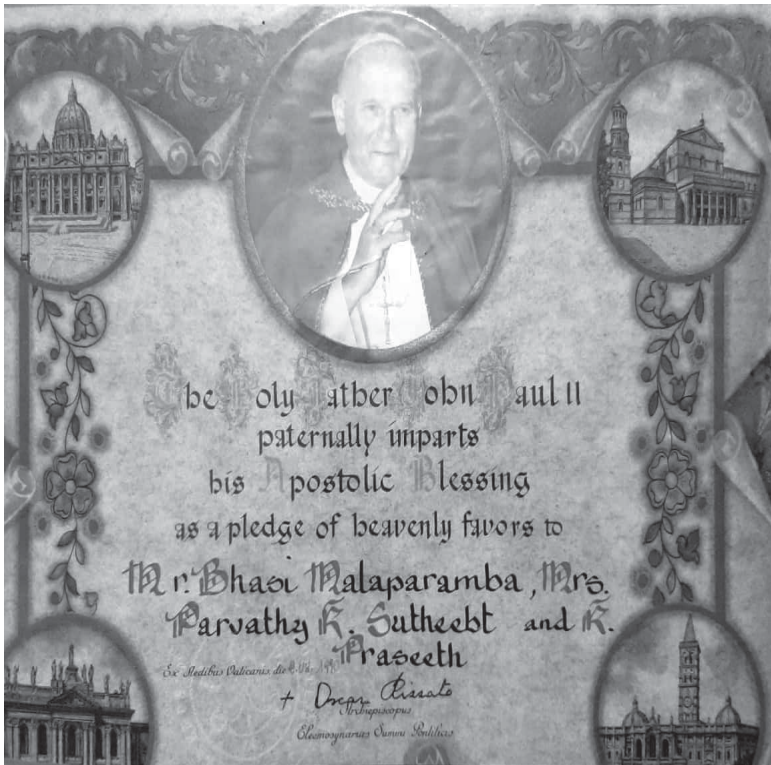 The Holy Father John Paul II
paternally imparts
his Apostolic Blessing
as a pledge of heavenly favors to
Mr. Bhasi Malaparamba, Mrs.
Parvathy K. Sutheebt and K.
Praseeth
Ex Aedibus Vaticanis die
+ Oscar Rizzato
Archiepiscopus
Eleemosynarius Summi Pontificis